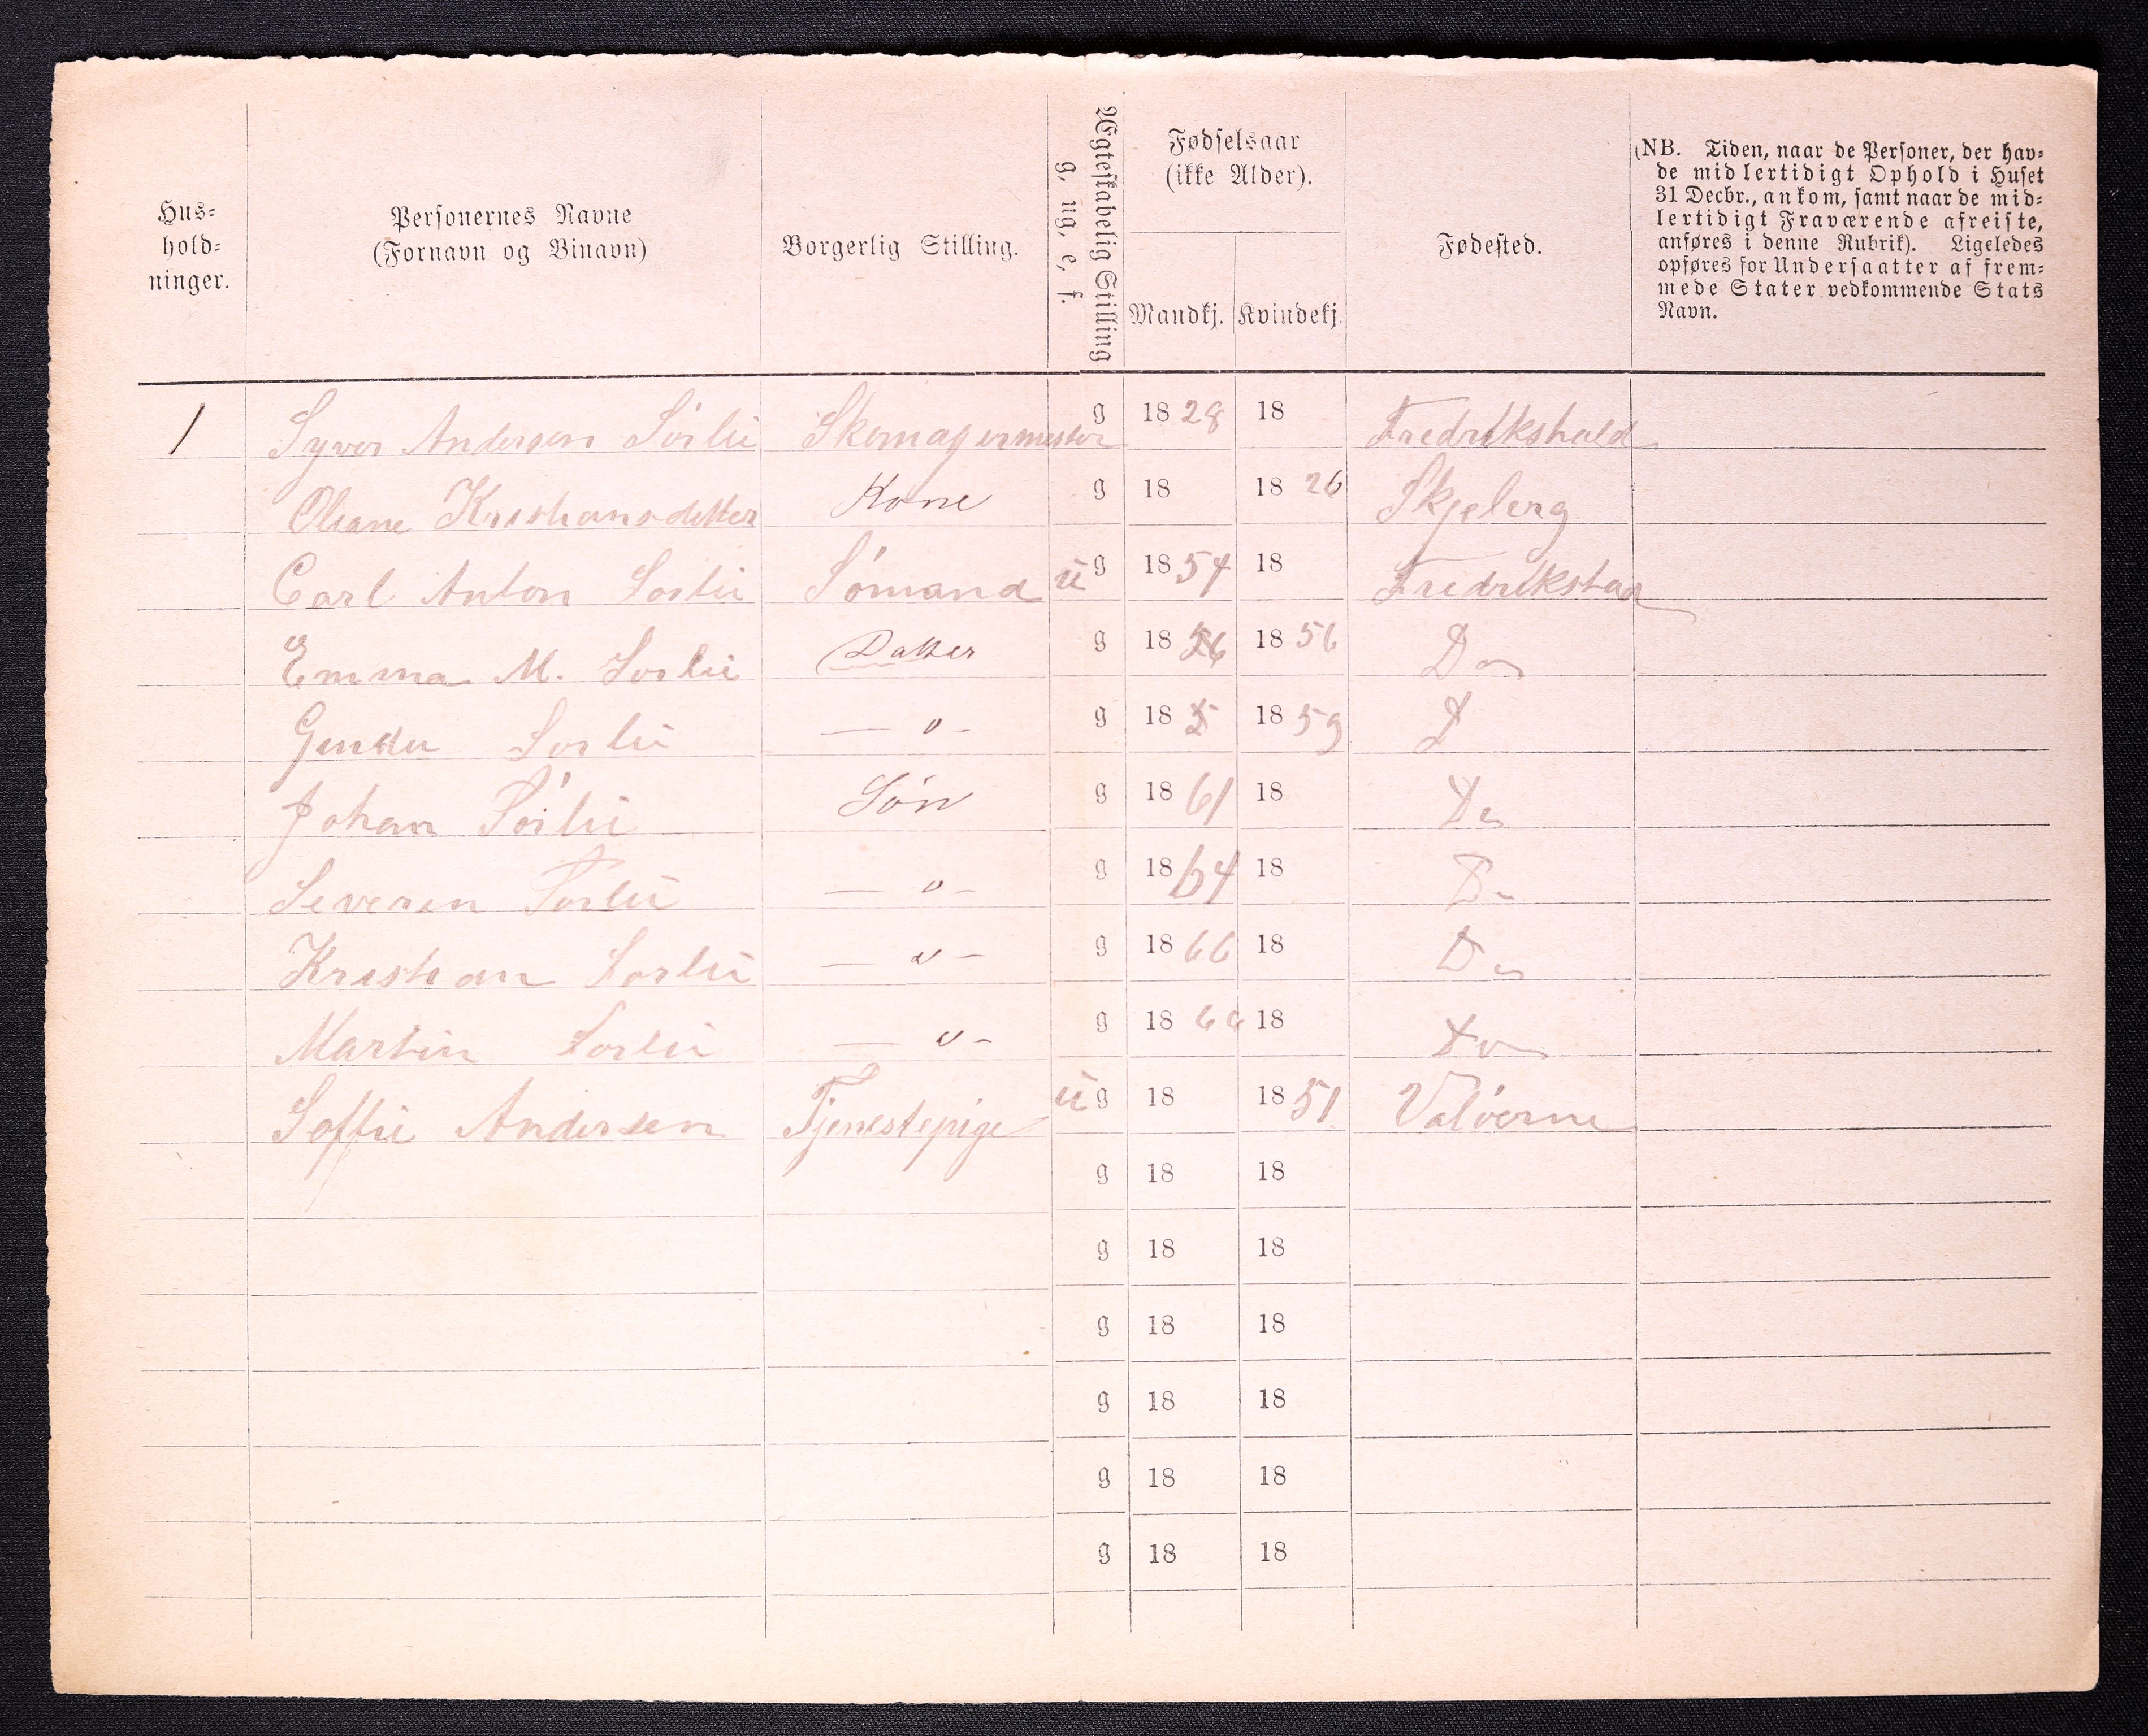 Hus-
hold-
ninger.
Personernes Navne
(Fornavn og Binavn)
Borgerlig Stilling.
Ægteskabelig Stilling
g, ug, e, f.
Fødselsaar
(ikke Alder).
Mandkj. Kvindekj.
Fødested.
(NB. Tiden, naar de Personer, der hav-
de midlertidigt Ophold i Huset
31 Decbr., ankom, samt naar de mid-
lertidigt Fraværende afreiste,
anføres i denne Rubrik). Ligeledes
opføres for Undersaatter af frem-
mede Stater vedkommende Stats
Navn.
1 Syver Andersen Sørlie Skomagermester g 1828 18 Fredrikshald
Oleane Kristiansdatter Kone g 18 1826 Skjeberg
Carl Anton Sorlie Sømand ug 1854 18 Fredrikstad
Emma M. Sorlie Datter g 18 1856 Do
Sorlie — " - g 18 1859 D
Johan Sørlie Søn g 1861 18 Do
Severin Sørlie — " - g 1864 18 Do
Kristian Sorlie — " - g 1866 18 Do
Martin Sorlie — " - g 18 66 18 Do
Soffie Andersen Tjenestepige ug 18 1851 Valøerne
g 18 18
g 18 18
g 18 18
g 18 18
g 18 18
g 18 18